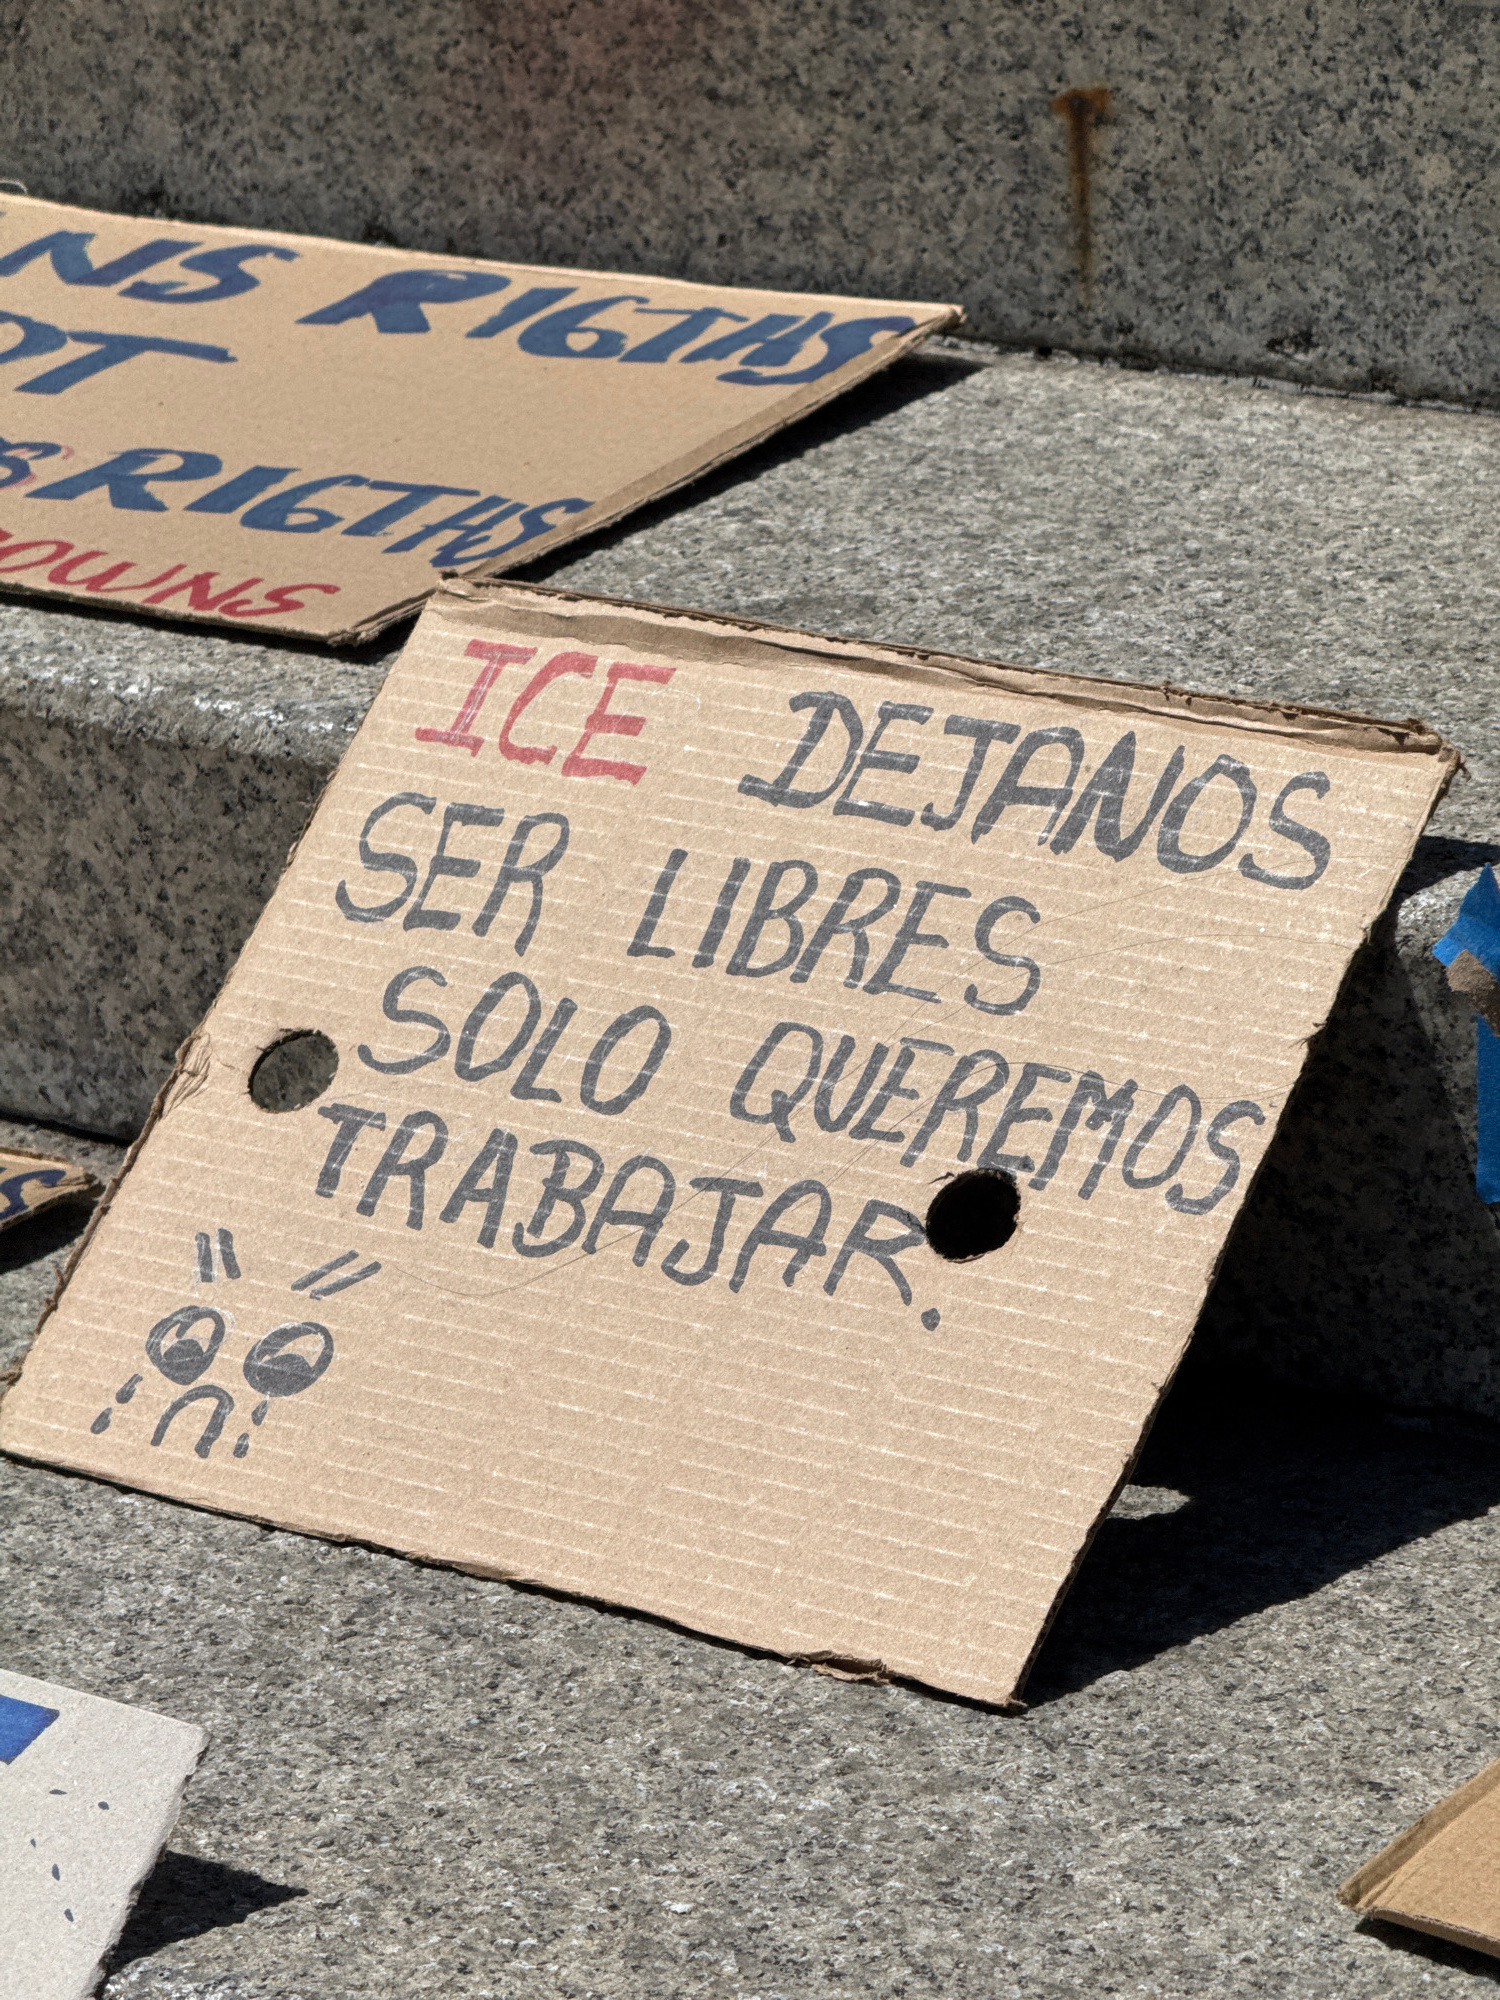 NS RIGTHS
OT
S RIGTHS
OWNS
ICE DEJANOS
SER LIBRES
SOLO QUEREMOS
TRABAJAR.